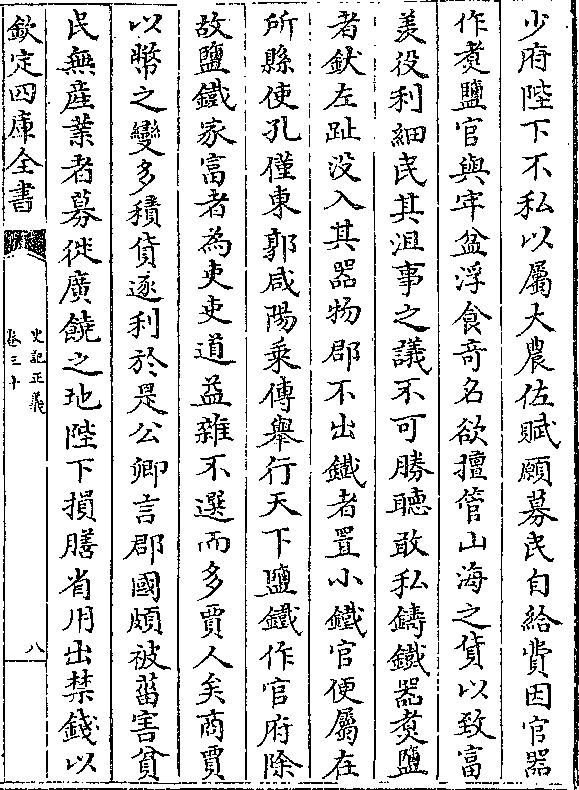 少府陛下不私以屬大農佐賦願募民自給費因官器
作煑鹽官與牢盆浮食竒名欲擅管山海之貨以致富
羡役利細民其沮事之議不可勝聽敢私鑄鐵器煑鹽
者釱左趾没入其器物郡不出鐵者置小鐵官便屬在
所縣使孔僅東郭咸陽乗傳舉行天下鹽鐵作官府除
故鹽鐵家富者為吏吏道益雜不選而多賈人矣商賈
以幣之變多積貨逐利於是公卿言郡國頗被菑害貧
民無産業者募徙廣饒之地陛下損膳省用出禁錢以
欽定四庫全書
史記正義
卷三十
八